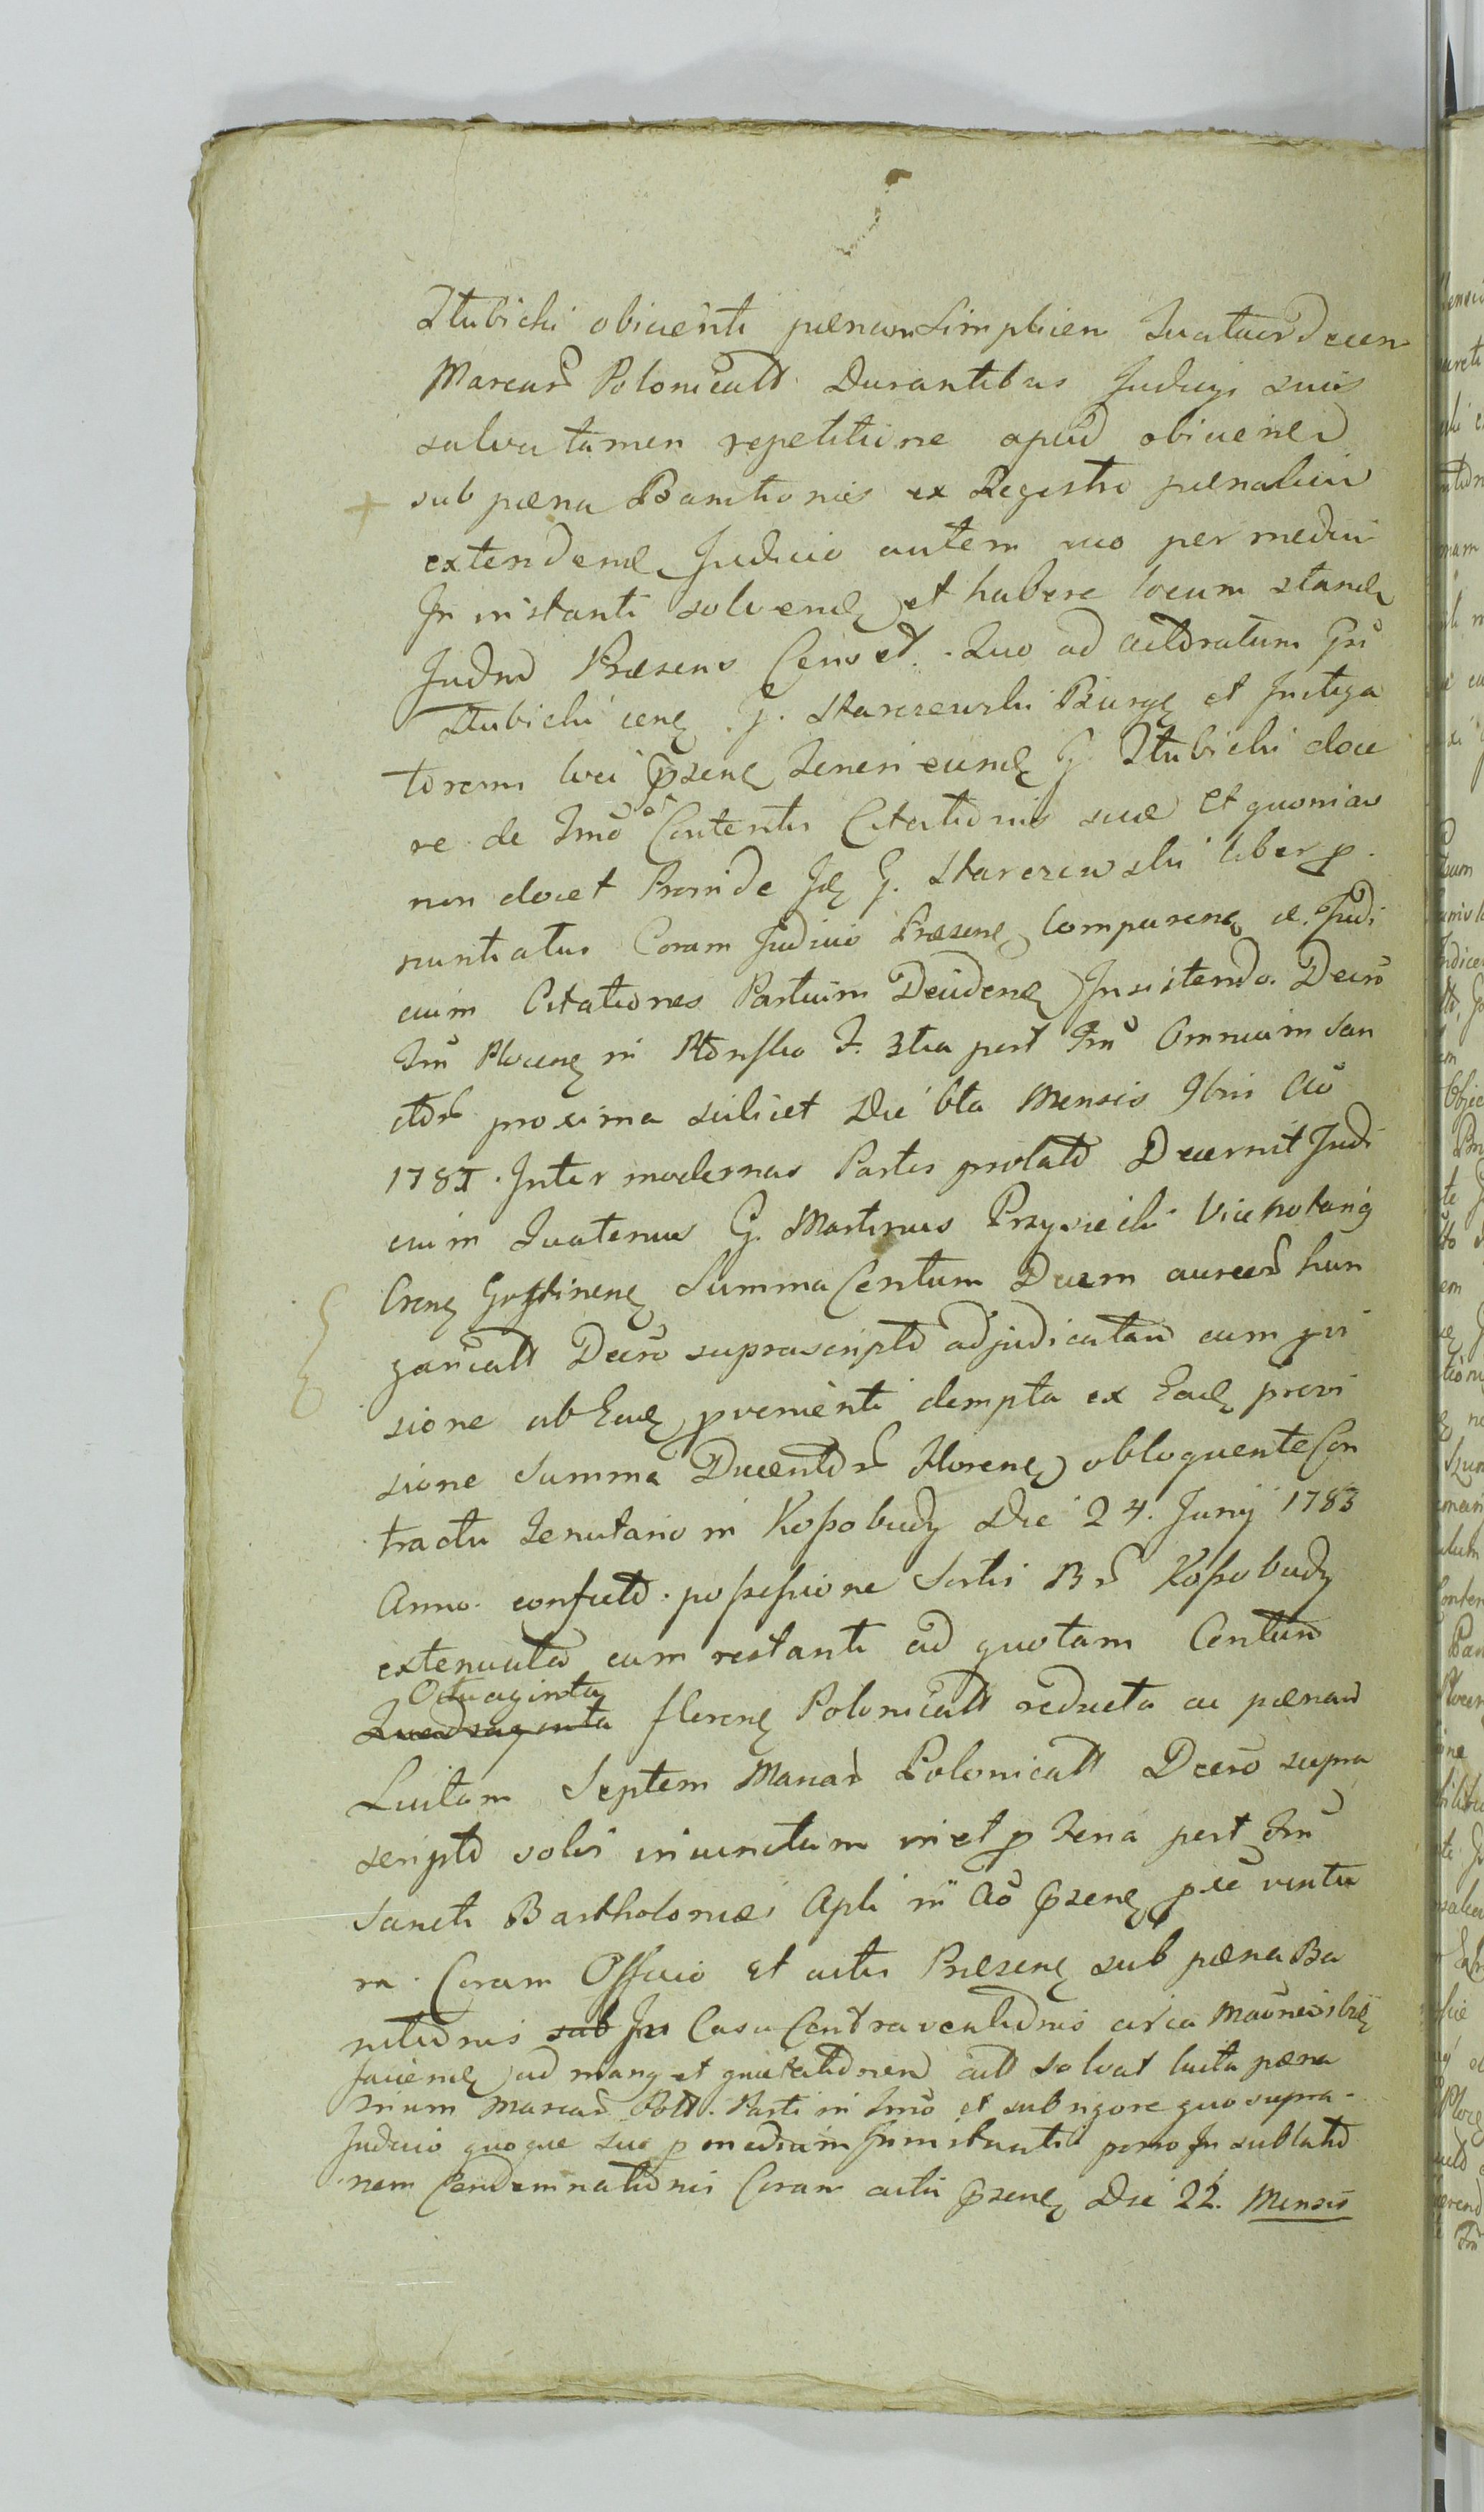 Stubicki obicienti pænam Simplicem Quatuordecem
Marcarũ Polonicall Durantibus Judicijs suis
salva tamen repetitione apud obicienẽ
sub pæna Banitionis ex Registro pænaliũ
extendenđ Judicio autem suo per mediũ
In instanti solvenđ et habere locum stanđi
Judm̃ Præsens Censet. Quo ad actoratum Gsi
Stubicki cenđ G. Skarczewski Burgđ et Instiga
torem loci Pszenđ Teneri eunđ G. Stubicki doce
re de Tm̃o et Contentis Citationis suæ Et quoniam
non docet Proinde Id G. Skarczewski liber p
nuntiatur Coram Judicio Præsenđ comparenđ ac Judi
cium Citationes Partium Decidenđ Insistendo Decrõ
Trñi Plocenđ in F. 3tia post Fm̃ Omnium San
ctor proxima scilicet Die 6ta Mensis 9bris Aõ
1781. Inter modernas Partes prolato Decernit Judi
cium Quatenus G. Martinus Przysiecki Vicenotarig
Crenđ Gostinenđ Summa Centum Decem aureorũ hun
garicall Decrõ suprascripto adjudicatam cum pvi
sione ab Eađ pvenienti dempta ex Eađ provi
sione Summa Ducentorũ Florenđ obloquente Con
tractu Tenutario in Kossobudy Die 24. Junij 1783
Anno confecto possessione Sortis Br Kossobudy
extenuata cum restanti ad quotam Centum
Octuaginta
Quadraginta florenđ Polonicall reducta ac pænam
Luitam Septem Marcarũ Polonicall Decrõ supra
scripto solvi iniunctum in et p Feria post Fm̃
Sancti Bartholomæi Apli in Aõ Pszenđ pxe ventu
ra Coram Officio Et actis Præsenđ sub pæna Ba
nitionis sub In Casu Contraventionis
facienđ ad mang et quietationem act solvat luita pæna
Trium Marcarũ Poll. Parti in Tm̃o et sub rigore quo supra
Judicio quoque suo p mediam pono In sublatio
nem Condemnationis Coram actis Pszenđ Die 22. Mensis